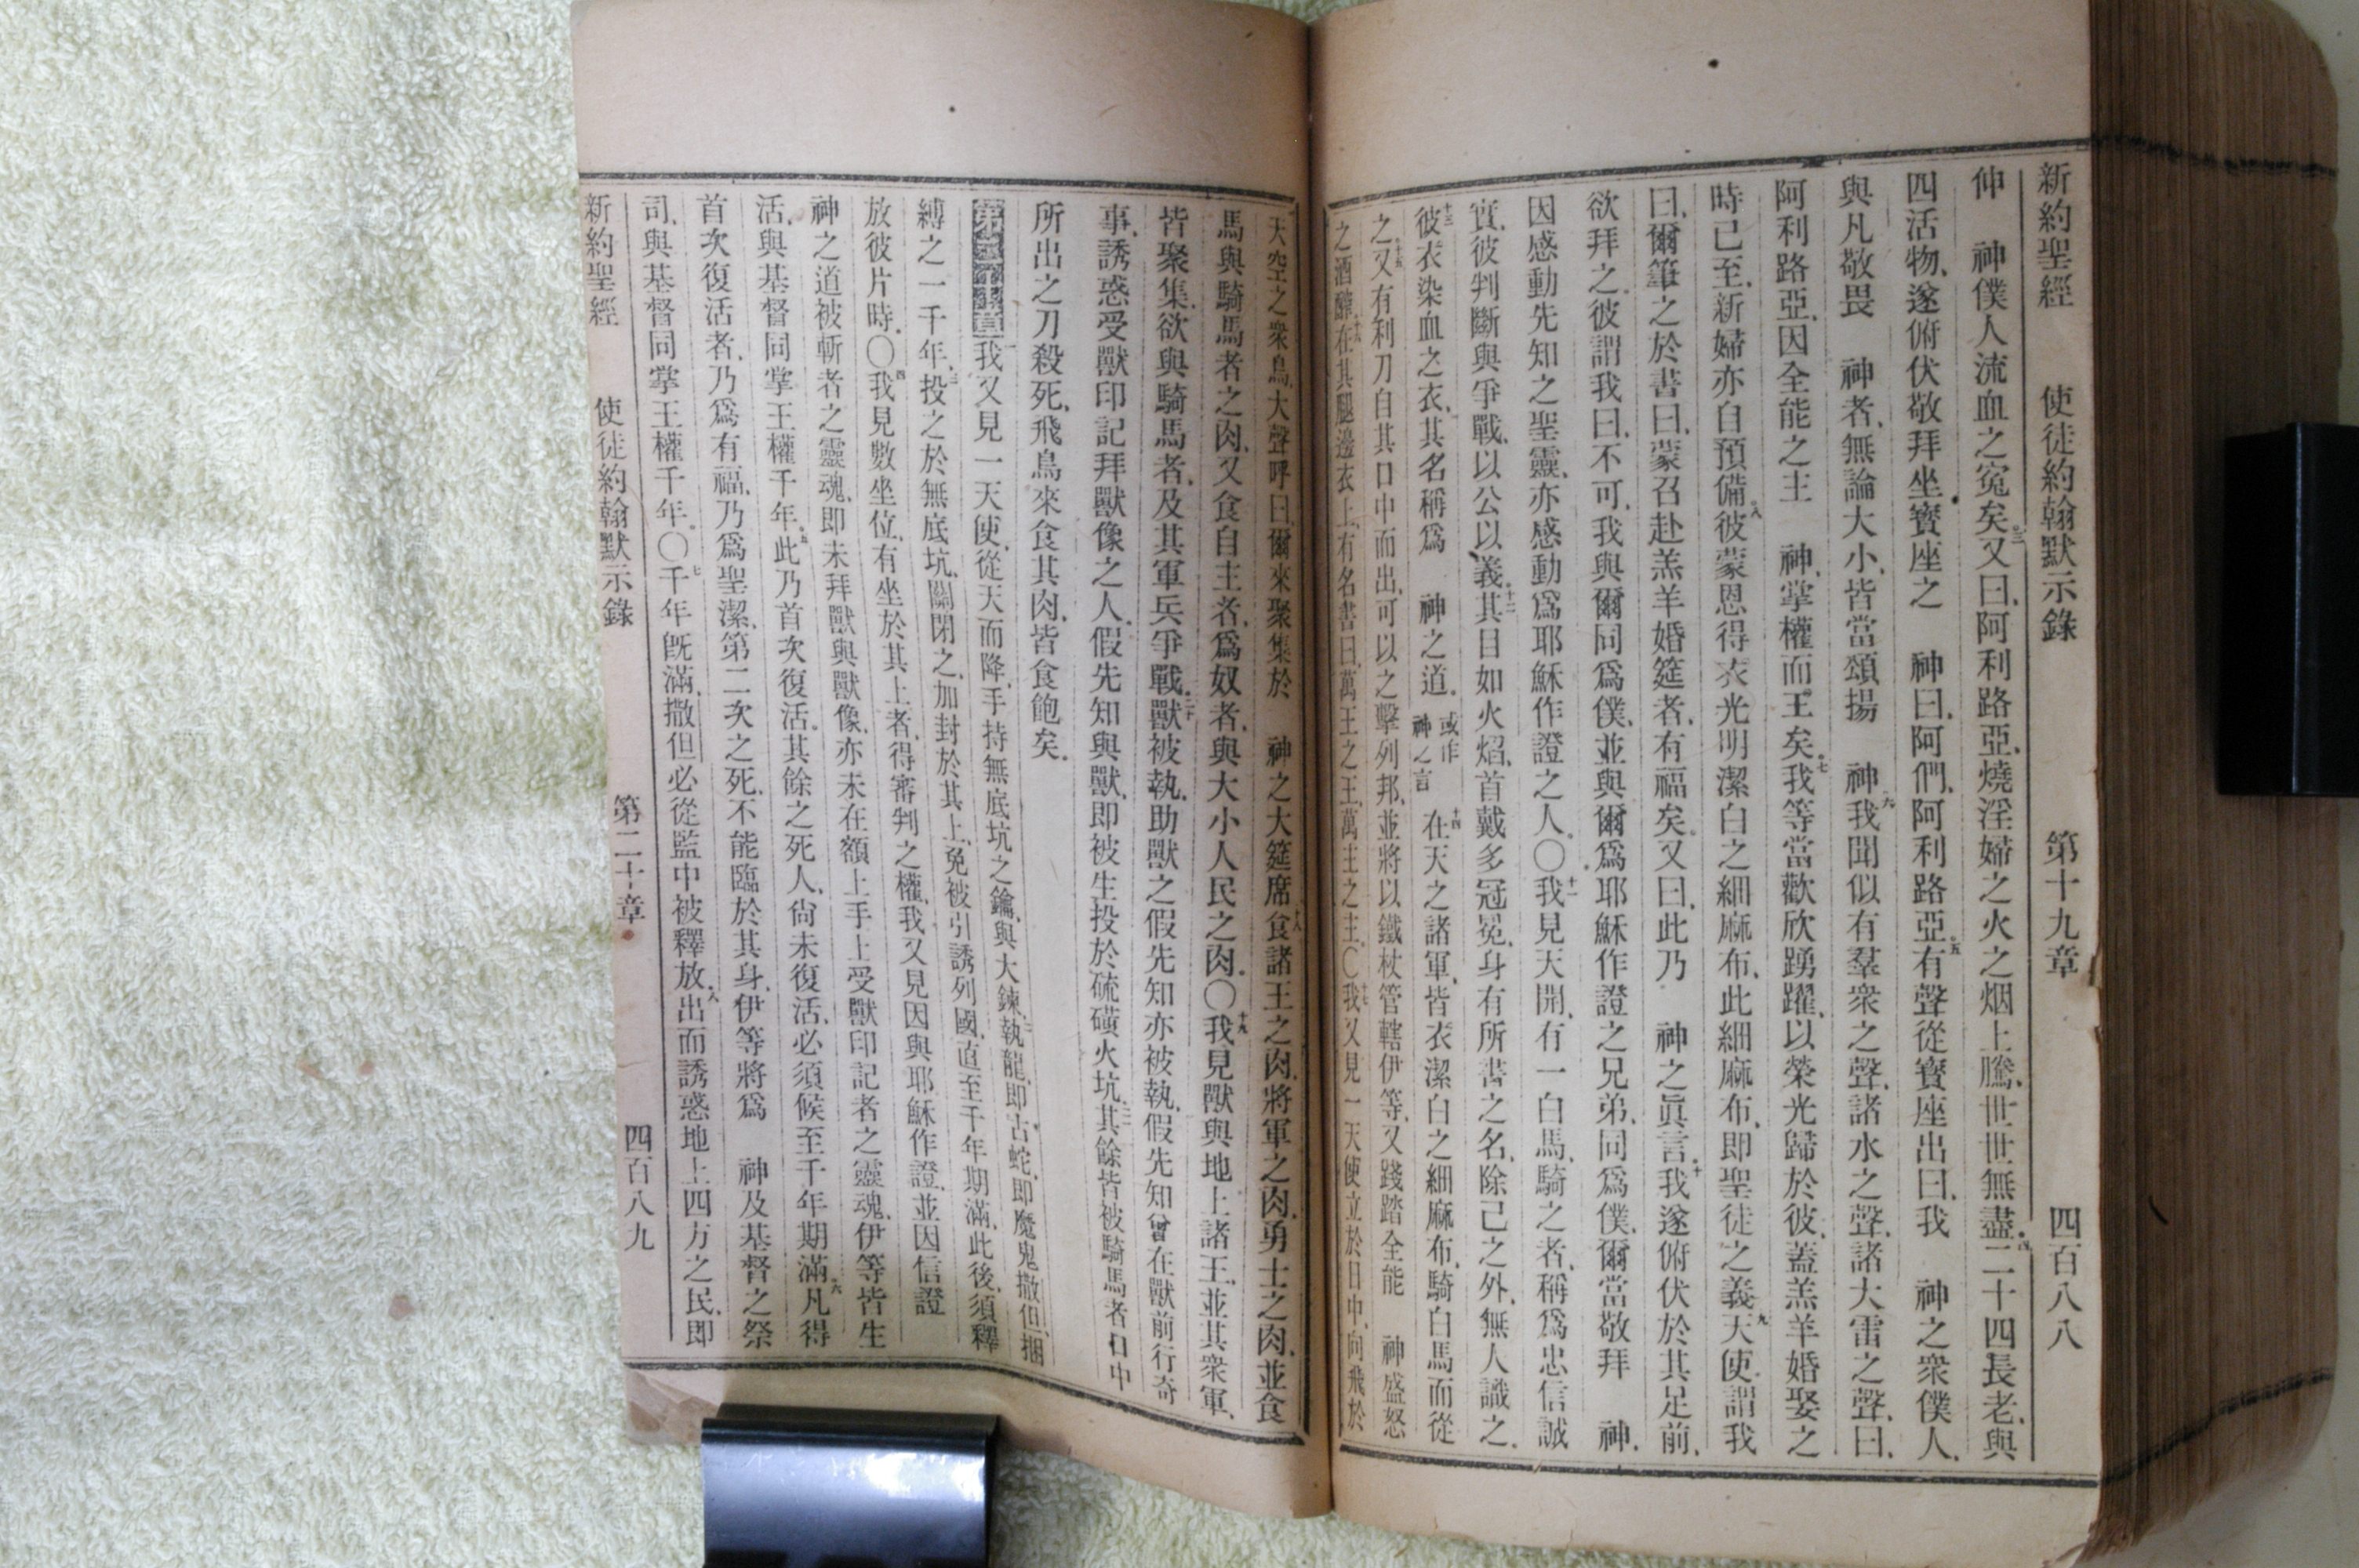 新約聖經 使徒約翰默示錄 第十九章 四百八八
伸 神僕人流血之冤矣三又曰、阿利路亞、燒淫婦之火之烟上騰、世世無盡四二十四長老、與
四活物、遂俯伏敬拜坐寶座之 神曰、阿們、阿利路亞五有聲從寶座出曰、我 神之衆僕人、
與凡敬畏 神者、無論大小、皆當頌揚 神六我聞似有羣衆之聲、諸水之聲、諸大雷之聲、曰、
阿利路亞、因全能之主 神、掌權而王矣七我等當歡欣踴躍、以榮光歸於彼、蓋羔羊婚娶之
時已至、新婦亦自預備八彼蒙恩得衣光明潔白之細麻布、此細麻布、即聖徒之義九天使謂我
曰、爾筆之於書曰、蒙召赴羔羊婚筵者、有福矣。又曰、此乃 神之眞言十我遂俯伏於其足前、
欲拜之、彼謂我曰、不可、我與爾同爲僕、並與爾爲耶穌作證之兄弟、同爲僕、爾當敬拜 神、
因感動先知之聖靈、亦感動爲耶穌作證之人。〇十一我見天開、有一白馬、騎之者、稱爲忠信誠
實、彼判斷與爭戰、以公以義十二其目如火焰、首戴多冠冕、身有所書之名、除己之外、無人識之、
十三彼衣染血之衣、其名稱爲 神之道。或作神之言 十四在天之諸軍、皆衣潔白之細麻布、騎白馬而從
之十五又有利刀自其口中而出、可以之擊列邦、並將以鐵杖管轄伊等、又踐踏全能 神盛怒
之酒醡十六在其腿邊衣上、有名書曰、萬王之王、萬主之主、〇十七我又見一天使立於日中、向飛於
天空之衆鳥、大聲呼曰、爾來聚集於 神之大筵席十八食諸王之肉、將軍之肉、勇士之肉、並食
馬與騎馬者之肉、又食自主者、爲奴者、與大小人民之肉。〇十九我見獸與地上諸王、並其衆軍、
皆聚集、欲與騎馬者、及其軍兵爭戰二十獸被執、助獸之假先知亦被執、假先知曾在獸前行奇
事、誘惑受獸印記拜獸像之人、假先知與獸、即被生投於硫磺火坑二一其餘皆被騎馬者口中
所出之刀殺死、飛鳥來食其肉、皆食飽矣。
第二十章一我又見一天使、從天而降、手持無底坑之鑰、與大鍊二執龍、即古蛇、即魔鬼撒但、捆
縛之一千年三投之於無底坑、關閉之、加封於其上、免被引誘列國、直至千年期滿、此後、須釋
放彼片時。〇四我見數坐位、有坐於其上者、得審判之權、我又見因與耶穌作證、並因信證
神之道被斬者之靈魂、即未拜獸與獸像、亦未在額上手上受獸印記者之靈魂、伊等皆生
活、與基督同掌王權千年五此乃首次復活。其餘之死人、尙未復活、必須候至千年期滿六凡得
首次復活者、乃爲有福、乃爲聖潔、第二次之死、不能臨於其身、伊等將爲 神及基督之祭
司、與基督同掌王權千年。〇七千年旣滿、撒但必從監中被釋放八出而誘惑地上四方之民、即
新約聖經 使徒約翰默示錄 第二十章 四百八九